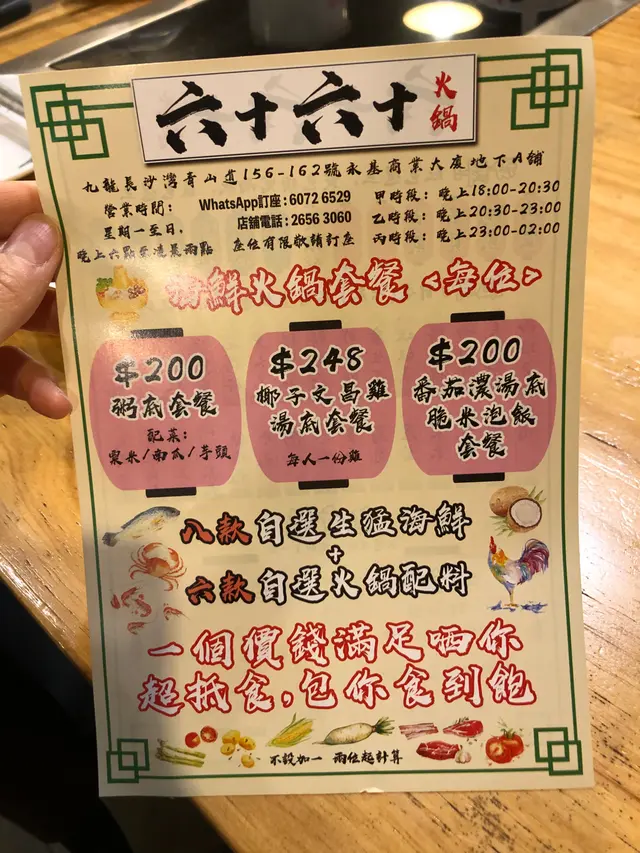 六十六十火鍋
九龍長沙灣青山道156-162號永基商業大廈地下A鋪
營業時間:
星期一至日,
晚上六點至凌晨兩點
WhatsApp訂座:6072 6529
店舖電話:2656 3060
座位有限敬請訂座
甲時段: 晚上18:00-20:30
乙時段: 晚上20:30-23:00
丙時段: 晚上23:00-02:00
海鮮火鍋套餐<每位>
$200
粥底套餐
配菜:
粟米/南瓜/芋頭
$248
椰子文昌雞
湯底套餐
每人一份雞
$200
番茄濃湯底
脆米泡飯
套餐
八款自選生猛海鮮
+
六款自選火鍋配料
一個價錢滿足哂你
超抵食,包你食到飽
不設加一 兩位起計算